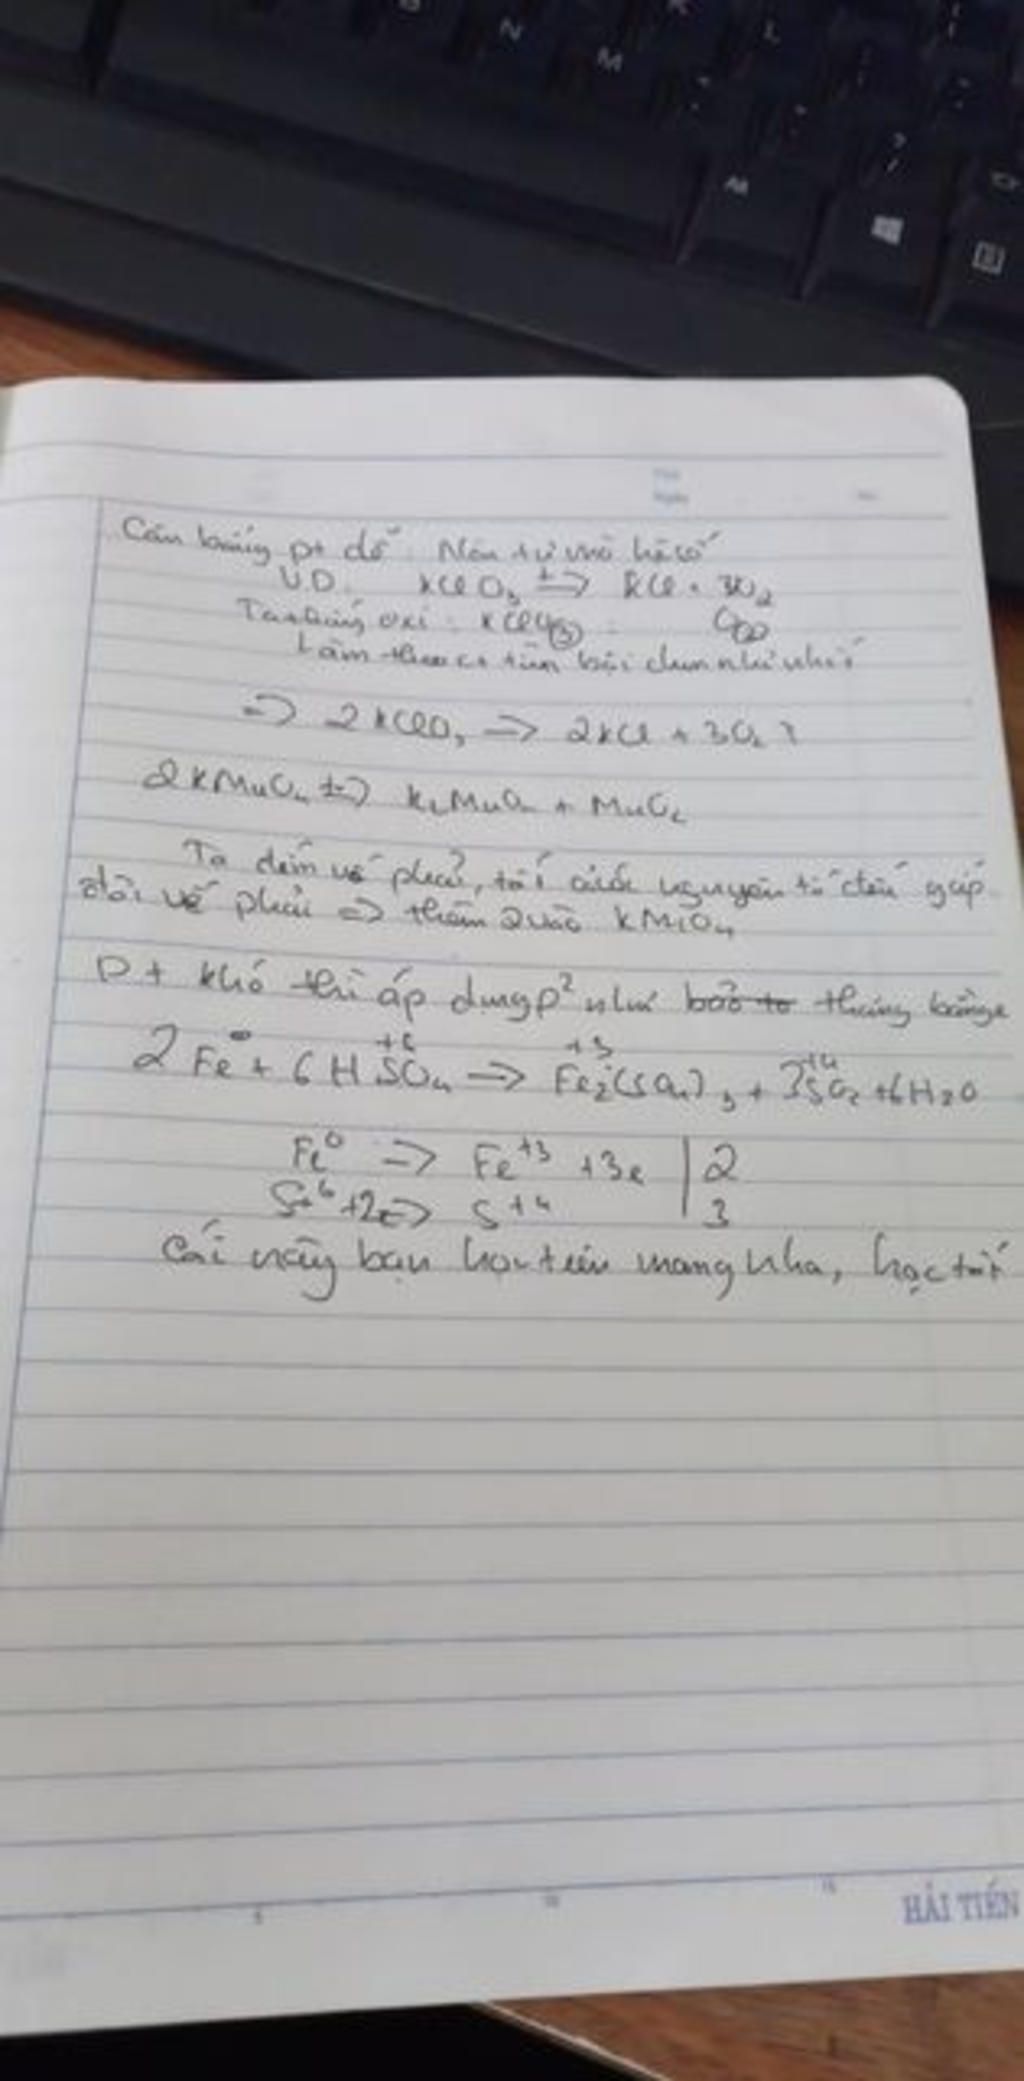 N
M
K
L
Cân bằng pt dễ: Nên tự nhờ hệ số
VD: KClO3 t=> KCl + 3O2
Ta thấy oxi: KClO3 : O2
Làm theo
=> 2KClO3 => 2KCl + 3O2 ↑
2KMnO4 t=> K2MnO4 + MnO2
Ta đếm vế phải, tất cả các nguyên tố đều gấp
đôi vế phải => thêm 2 vào KMnO4
Pt khó thì áp dụng p2 như thăng bằng e
2Fe0 + 6H2S+6O4 => Fe2+3(SO4)3 + 3S+4O2 + 6H2O
Fe0 => Fe+3 + 3e | 2
S+6 + 2e => S+4 | 3
Cái này bạn học trên mạng nha, học tốt
HẢI TIẾN